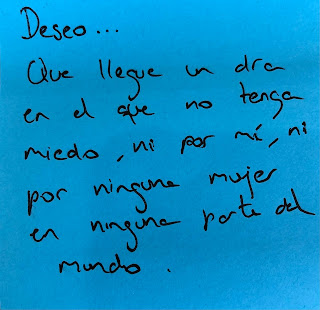 Deseo...
Que llegue un dia
en el que no tenga
miedo, ni por mí, ni
por ninguna mujer
en ninguna parte del
mundo.